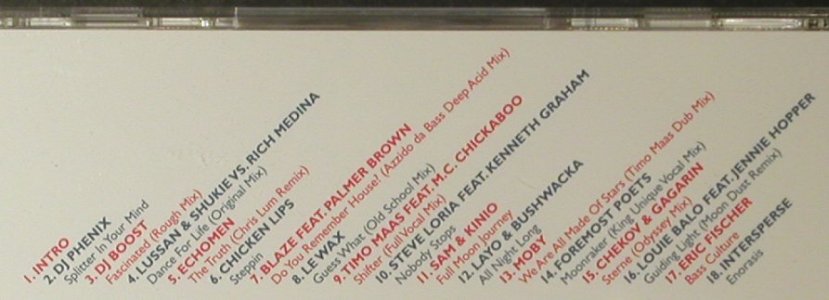 1. INTRO
2. DJ PHENIX
Splitter In Your Mind
3. DJ BOOST
Fascinated (Rough Mix)
4. LUSSAN & SHUKIE VS. RICH MEDINA
Dance For Life (Original Mix)
5. ECHOMEN
The Truth (Chris Lum Remix)
6. CHICKEN LIPS
Steppin
7. BLAZE FEAT. PALMER BROWN
Do You Remember House? (Azzido da Bass Deep Acid Mix)
8. LE WAX
Guess What (Old School Mix)
9. TIMO MAAS FEAT. M.C. CHICKABOO
Shifter (Full Vocal Mix)
10. STEVE LORIA FEAT. KENNETH GRAHAM
Nobody Stops
11. SAM & KINIO
Full Moon Journey
12. LAYO & BUSHWACKA
All Night Long
13. MOBY
We Are All Made Of Stars (Timo Maas Dub Mix)
14. FOREMOST POETS
Moonraker (King Unique Vocal Mix)
15. CHEKOV & GAGARIN
Sterne (Odyssey Mix)
16. LOUIE BALO FEAT. JENNIE HOPPER
Guiding Light (Moon Dust Remix)
17. ERIC FISCHER
Bass Culture
18. INTERSPERSE
Enorasis